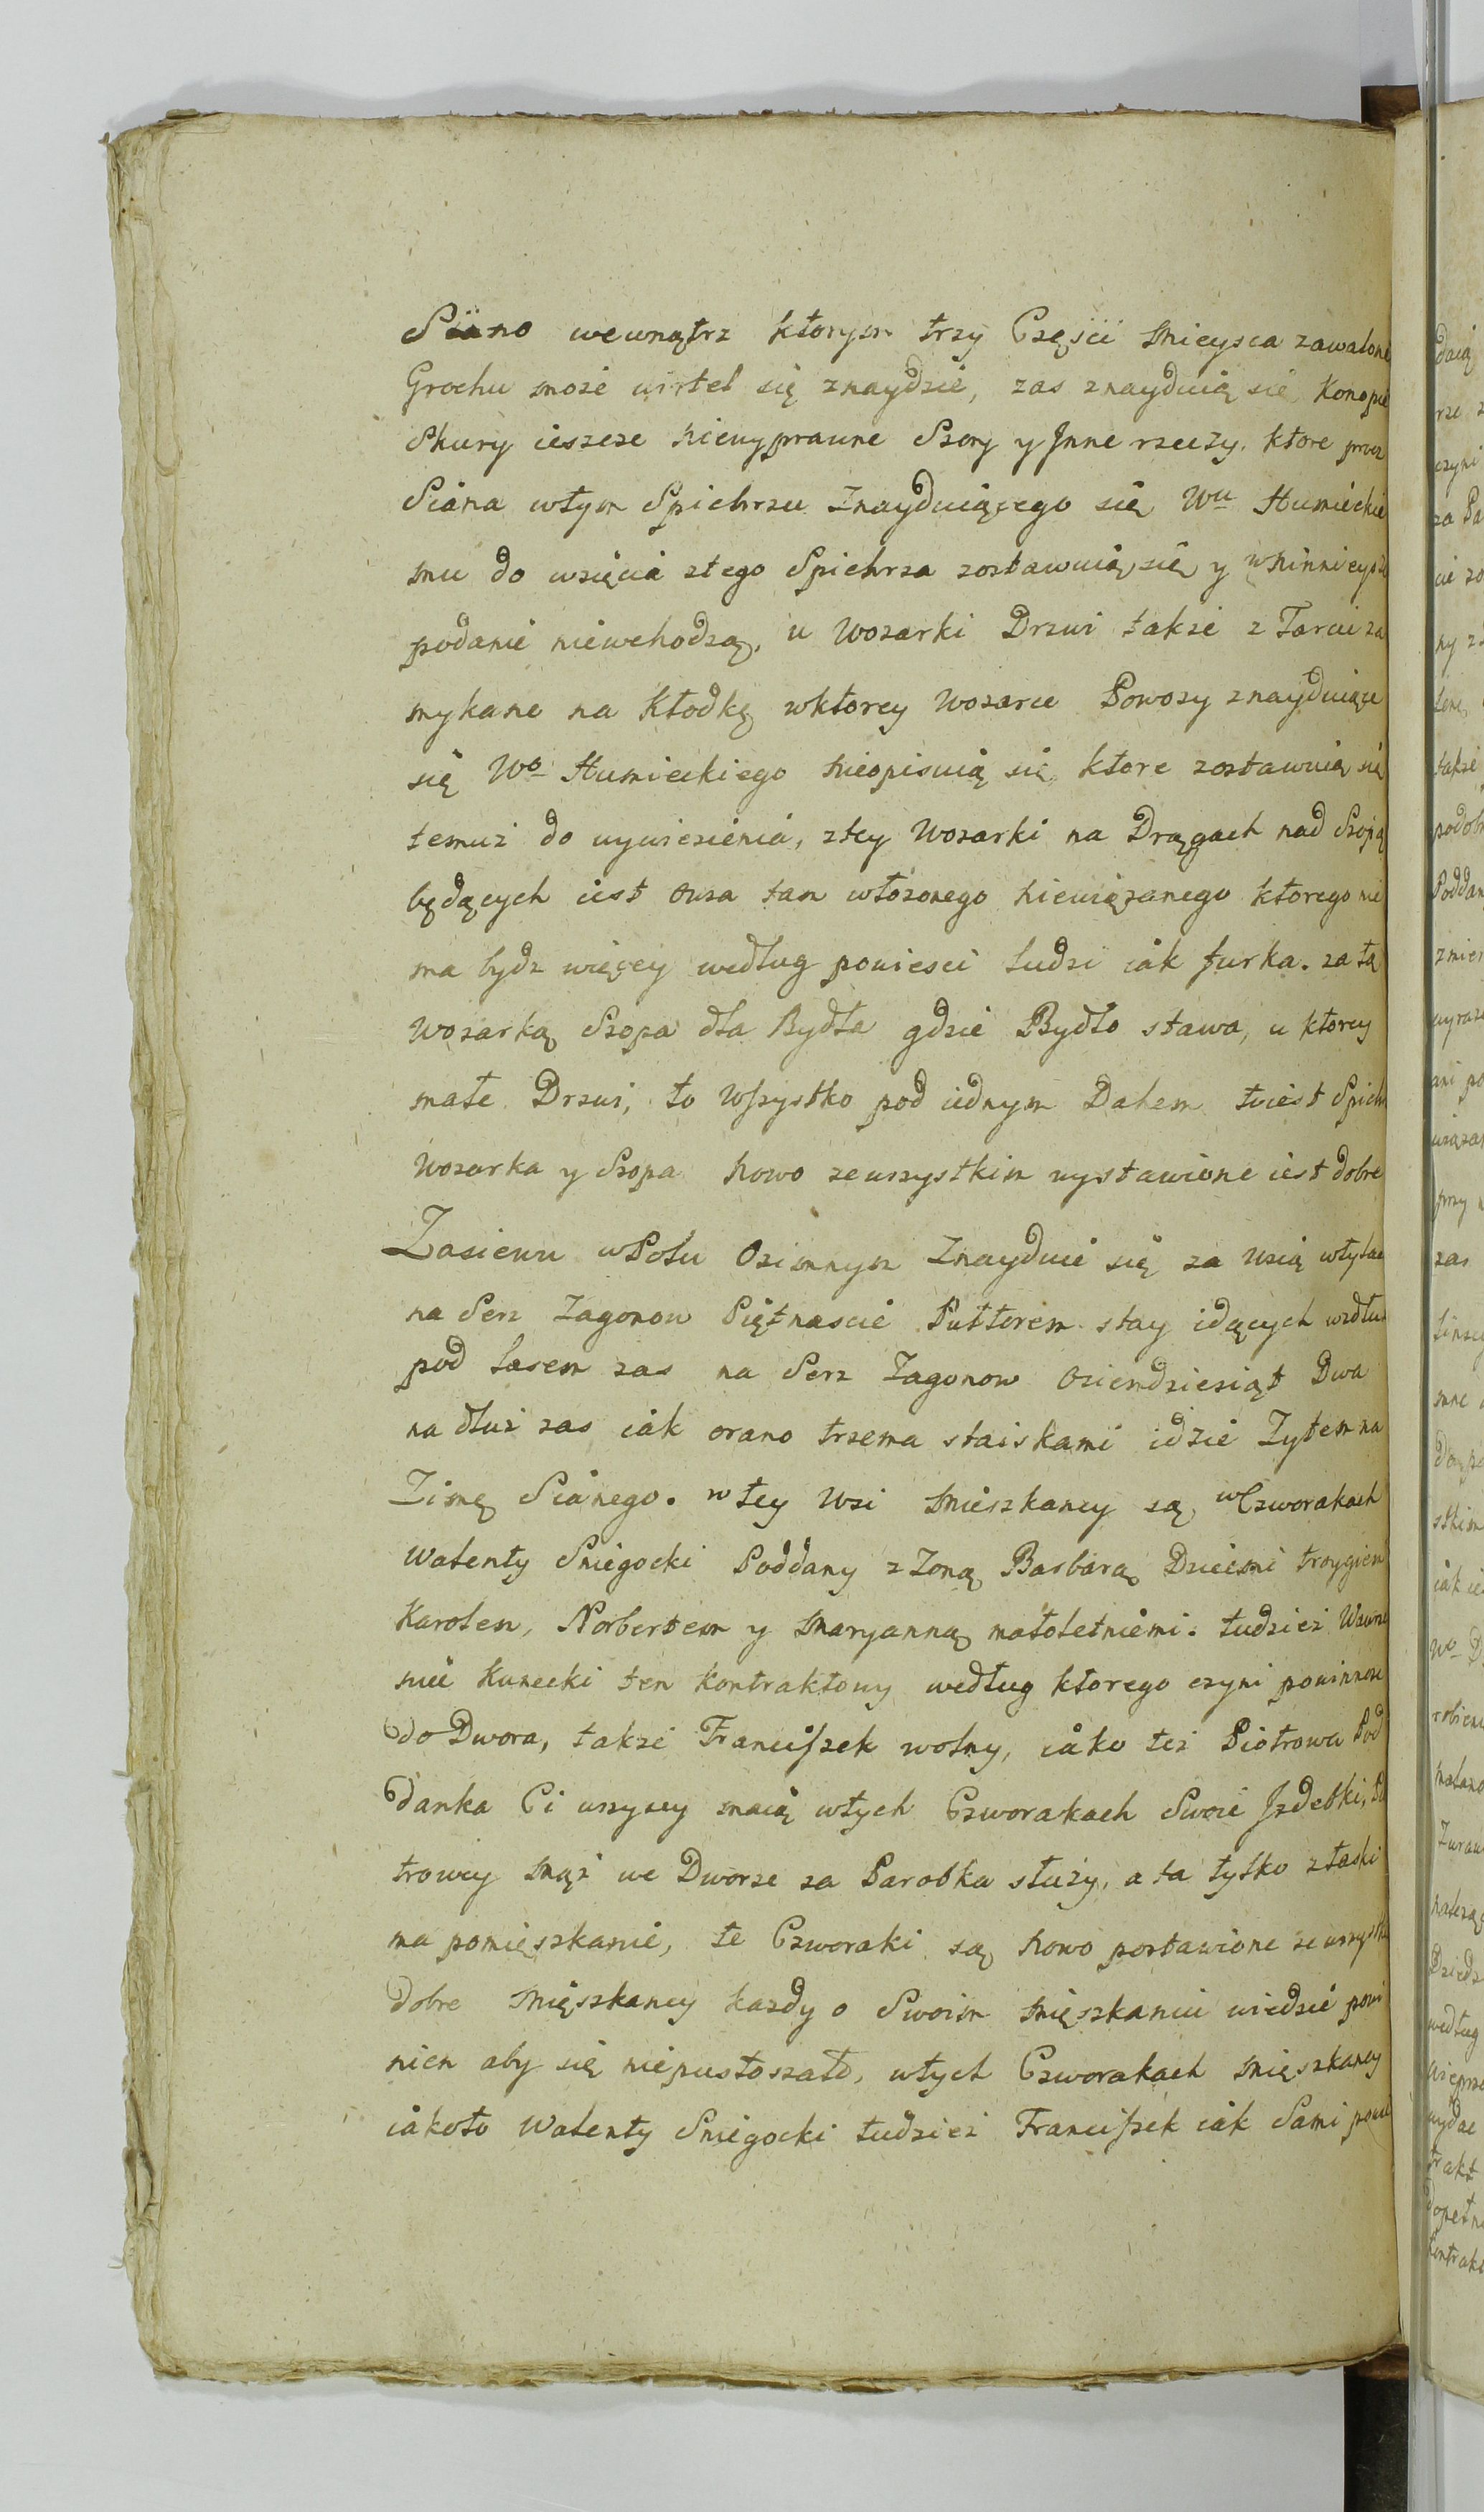 Siano wewnątrz ktorym trzy Części Mieysca zawalone
Grochu może wirtel się znaydzie, zas znayduią się Konopie
Skury ieszcze niewyprawne Szory y Jnne rzeczy. ktore procz
Siana wtym Spichrzu Znayduiącego się Wu Humieckie
mu do wzięcia ztego Spichrza zostawuią się y w Ninnieysze
podanie niewchodzą, u Wozarki Drzwi także z Tarcic za
mykane na Kłodkę wktorey Wozarce Powozy znayduiące
się Wo Humieckiego nieopisuią się ktore zostawuią się
temuż do wywiezienia, ztey Wozarki na Drągach nad Szopą
będących iest Owsa tam włozonego niewiązanego ktorego nie
ma bydz więcey według powiesci ludzi iak furka. za tą
Wozarką Szopa dla Bydła gdzie Bydło stawa, u ktorey
małe Drzwi, to Wszystko pod iednym Dahem toiest Spichrz
Wozarka y Szopa Nowo zewszystkim wystawione iest dobre
Zasiewu w Polu Ozimnym Znayduie się za Wsią wtyłac
na Serz Zagonow Piętnascie Pułtorem stay idących wzdłuż
pod Lasem zas na Serz Zagonow Osiemdziesiąt Dwa
na dłuż zas iak orano trzema staiskami idzie Zytem na
Zimę Sianego. w tey Wsi Mieszkancy są w Czworakach
Walenty Sniegocki Poddany z Zoną Barbarą Dziecmi troygiem
Karolem, Norbertem y Maryanną małoletniemi. tudziez Wawrz
nie Kunecki ten Kontraktowy według ktorego czyni powinnosc
do Dwora, także Franciszek wolny, iako tez Piotrowa Pod
danka Ci wszyscy maią wtych Czworakach Swoie Jzdebki, Pio
trowey Mąż we Dworze za Parobka służy, a ta tylko z łaski
ma pomięszkanie, te Czworaki są Nowo postawione zewszystki
dobre Mięszkancy kazdy o Swoim Mięszkaniu wiedzie powi
nien aby się niepustoszało, wtych Czworakach Mięszkancy
iakoto Walenty Sniegocki tudziez Franciszek iak Sami powie